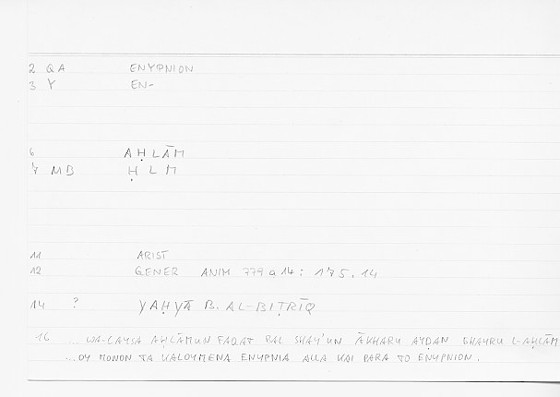 2 QA ENYPNION
3 Y EN-
6 AḤLĀM
7 MB ḤLM
11 ARIST
12 GENER ANIM 779 a 14 : 175.14
14 ? YAḤYĀ B. AL-BIṬRĪQ
16 ... WA-LAYSA AḤLĀMUN FAQAT BAL SHAY'UN ĀKHARU AYḌAN GHAYRU L-AḤLĀM
... OY MONON TA KALOYMENA ENYPNIA ALLA KAI PARA TO ENYPNION.